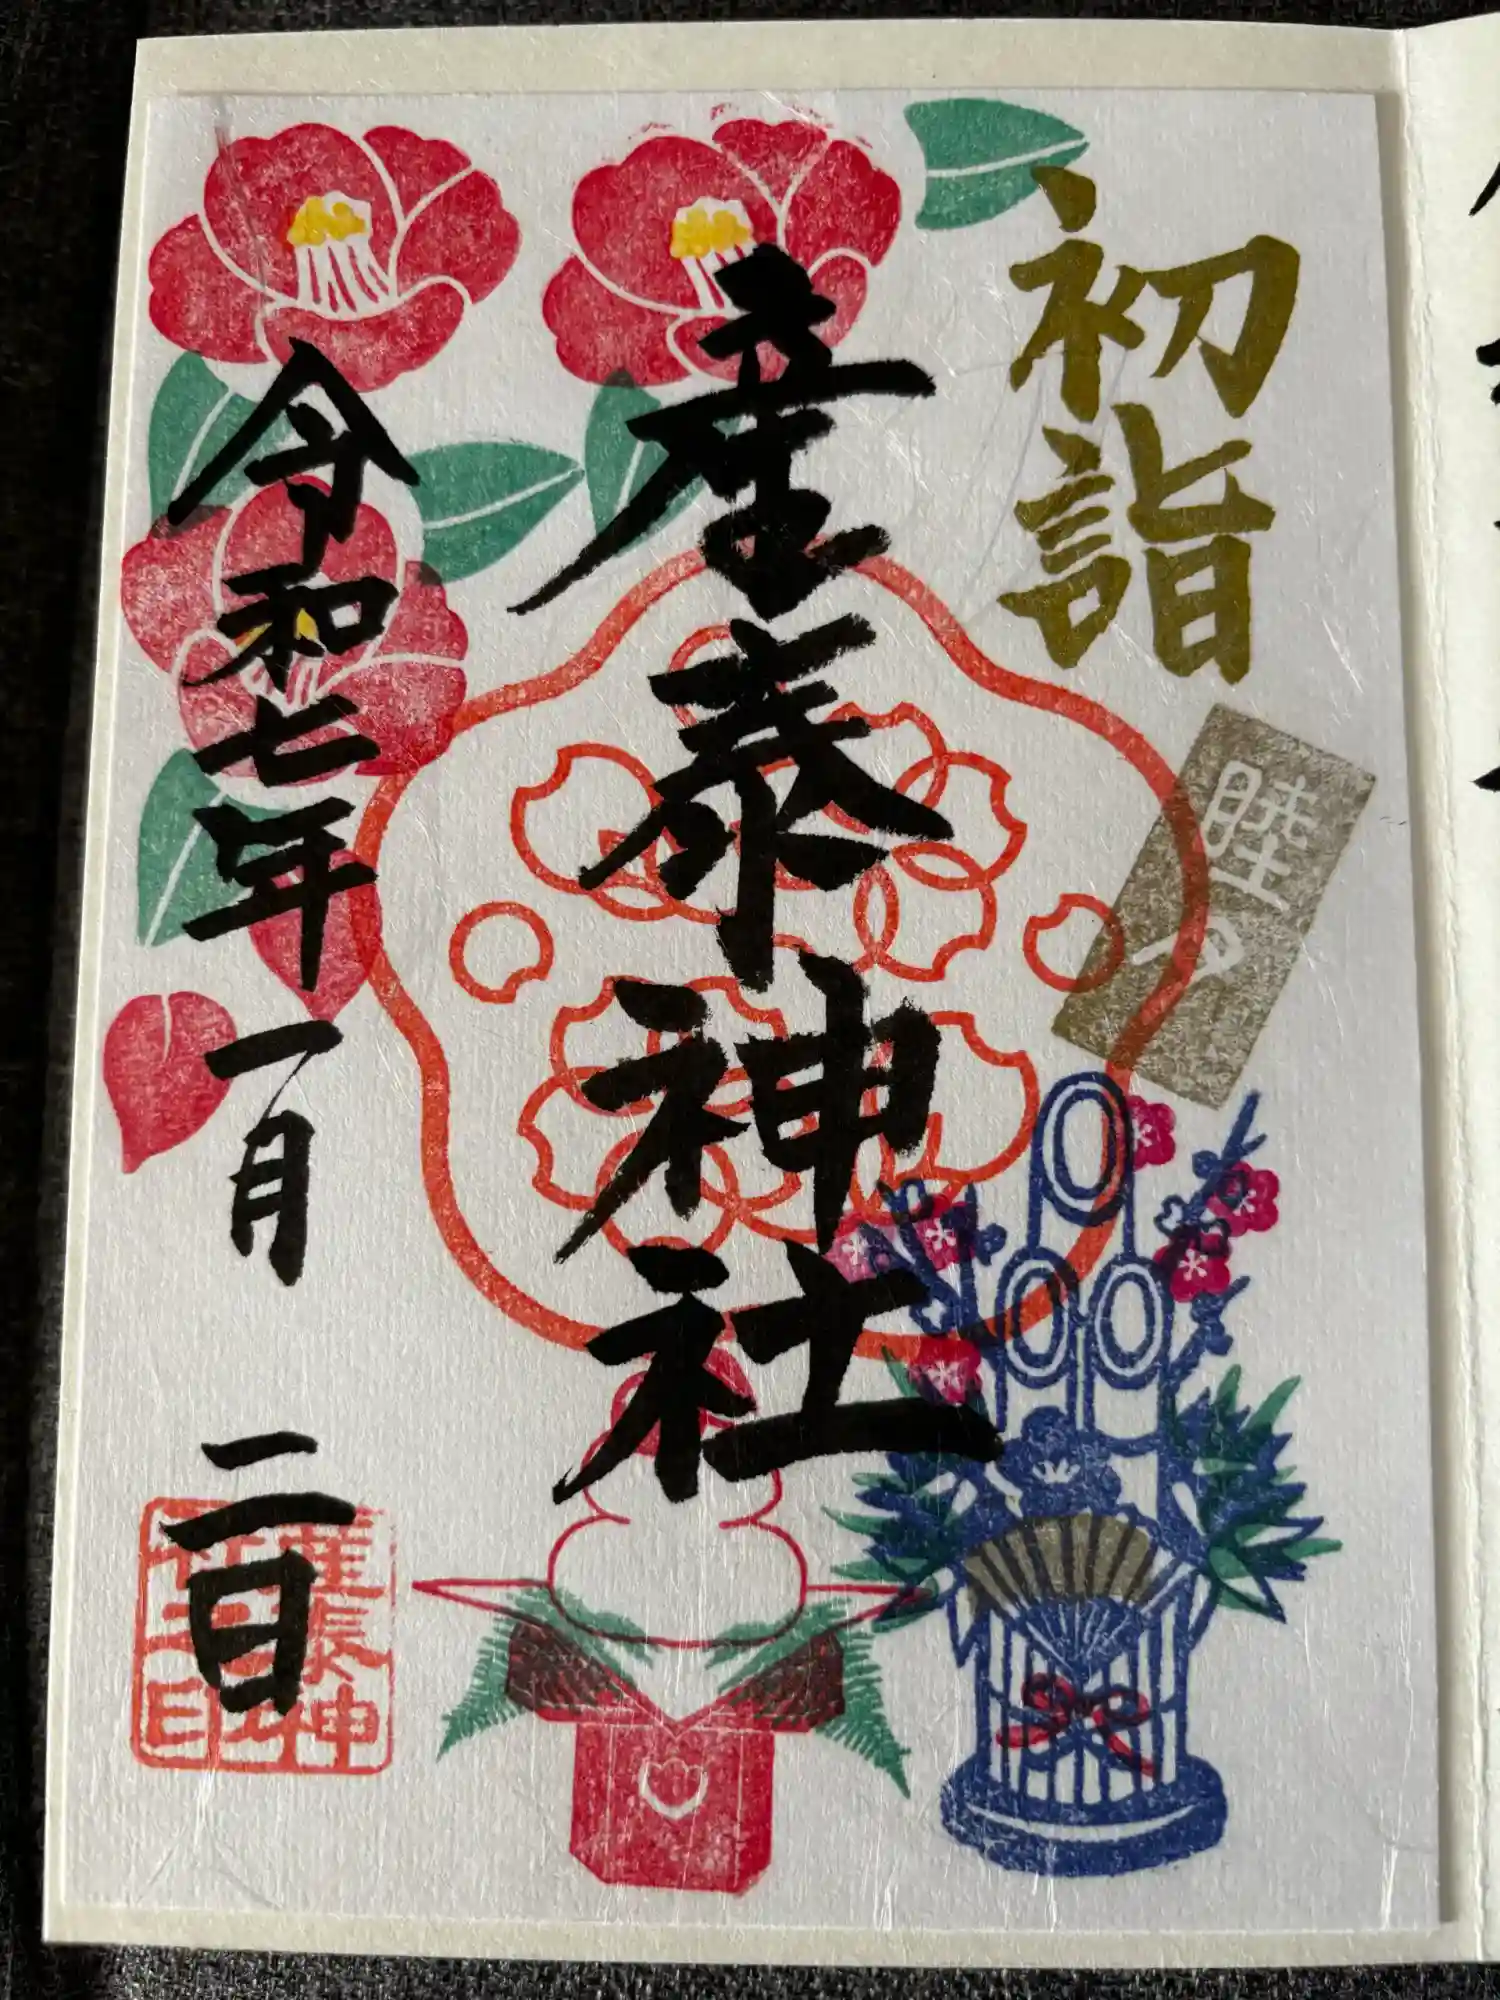 初詣
睦月
産泰神社
令和七年一月二日
産泰神